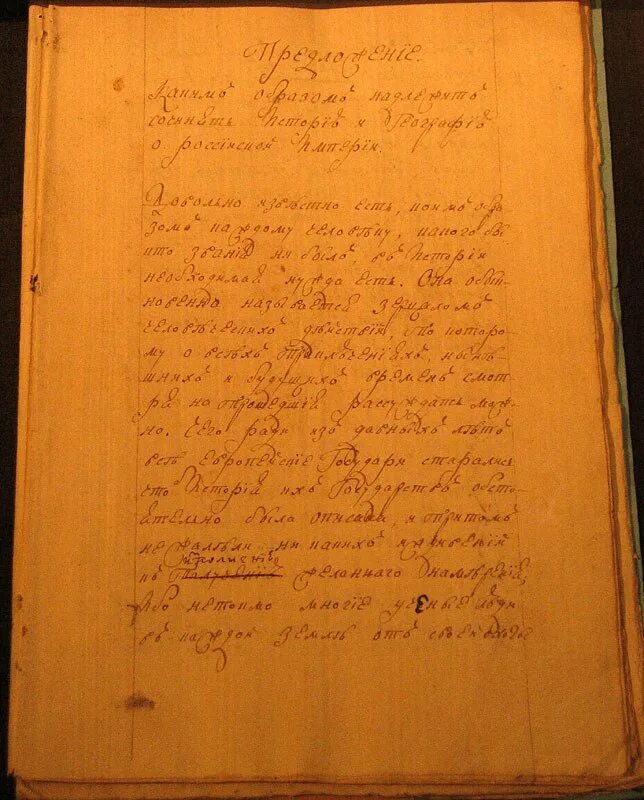 Предложенїе.
Какимъ образомъ надлежитъ
сочинить Исторїю и Географїю
о россїиской Имперїи.
Довольно извѣстно есть, коимъ обра-
зомъ каждому человѣку, какого бы
кто званїя ни былъ, въ Исторїи
необходимая нужда есть. Она обык-
новенно называется зерцаломъ
человѣческихъ дѣиствїи, по которо-
му о всѣхъ приключенїяхъ, нынѣ-
шнихъ и будущихъ временъ смот-
ря на прошедшїя рассуждать мож-
но. Сего ради изъ давныхъ лѣтъ
всѣ европеискїе Государи старались
что Исторїя ихъ Государствъ обсто-
ятельно была описана, и притомъ
не жалѣли ни какихъ иждивенїи
къ желаемаго намѣренїя,
Ибо не токмо многїе ученые люди
въ каждои землѣ отъ своеи